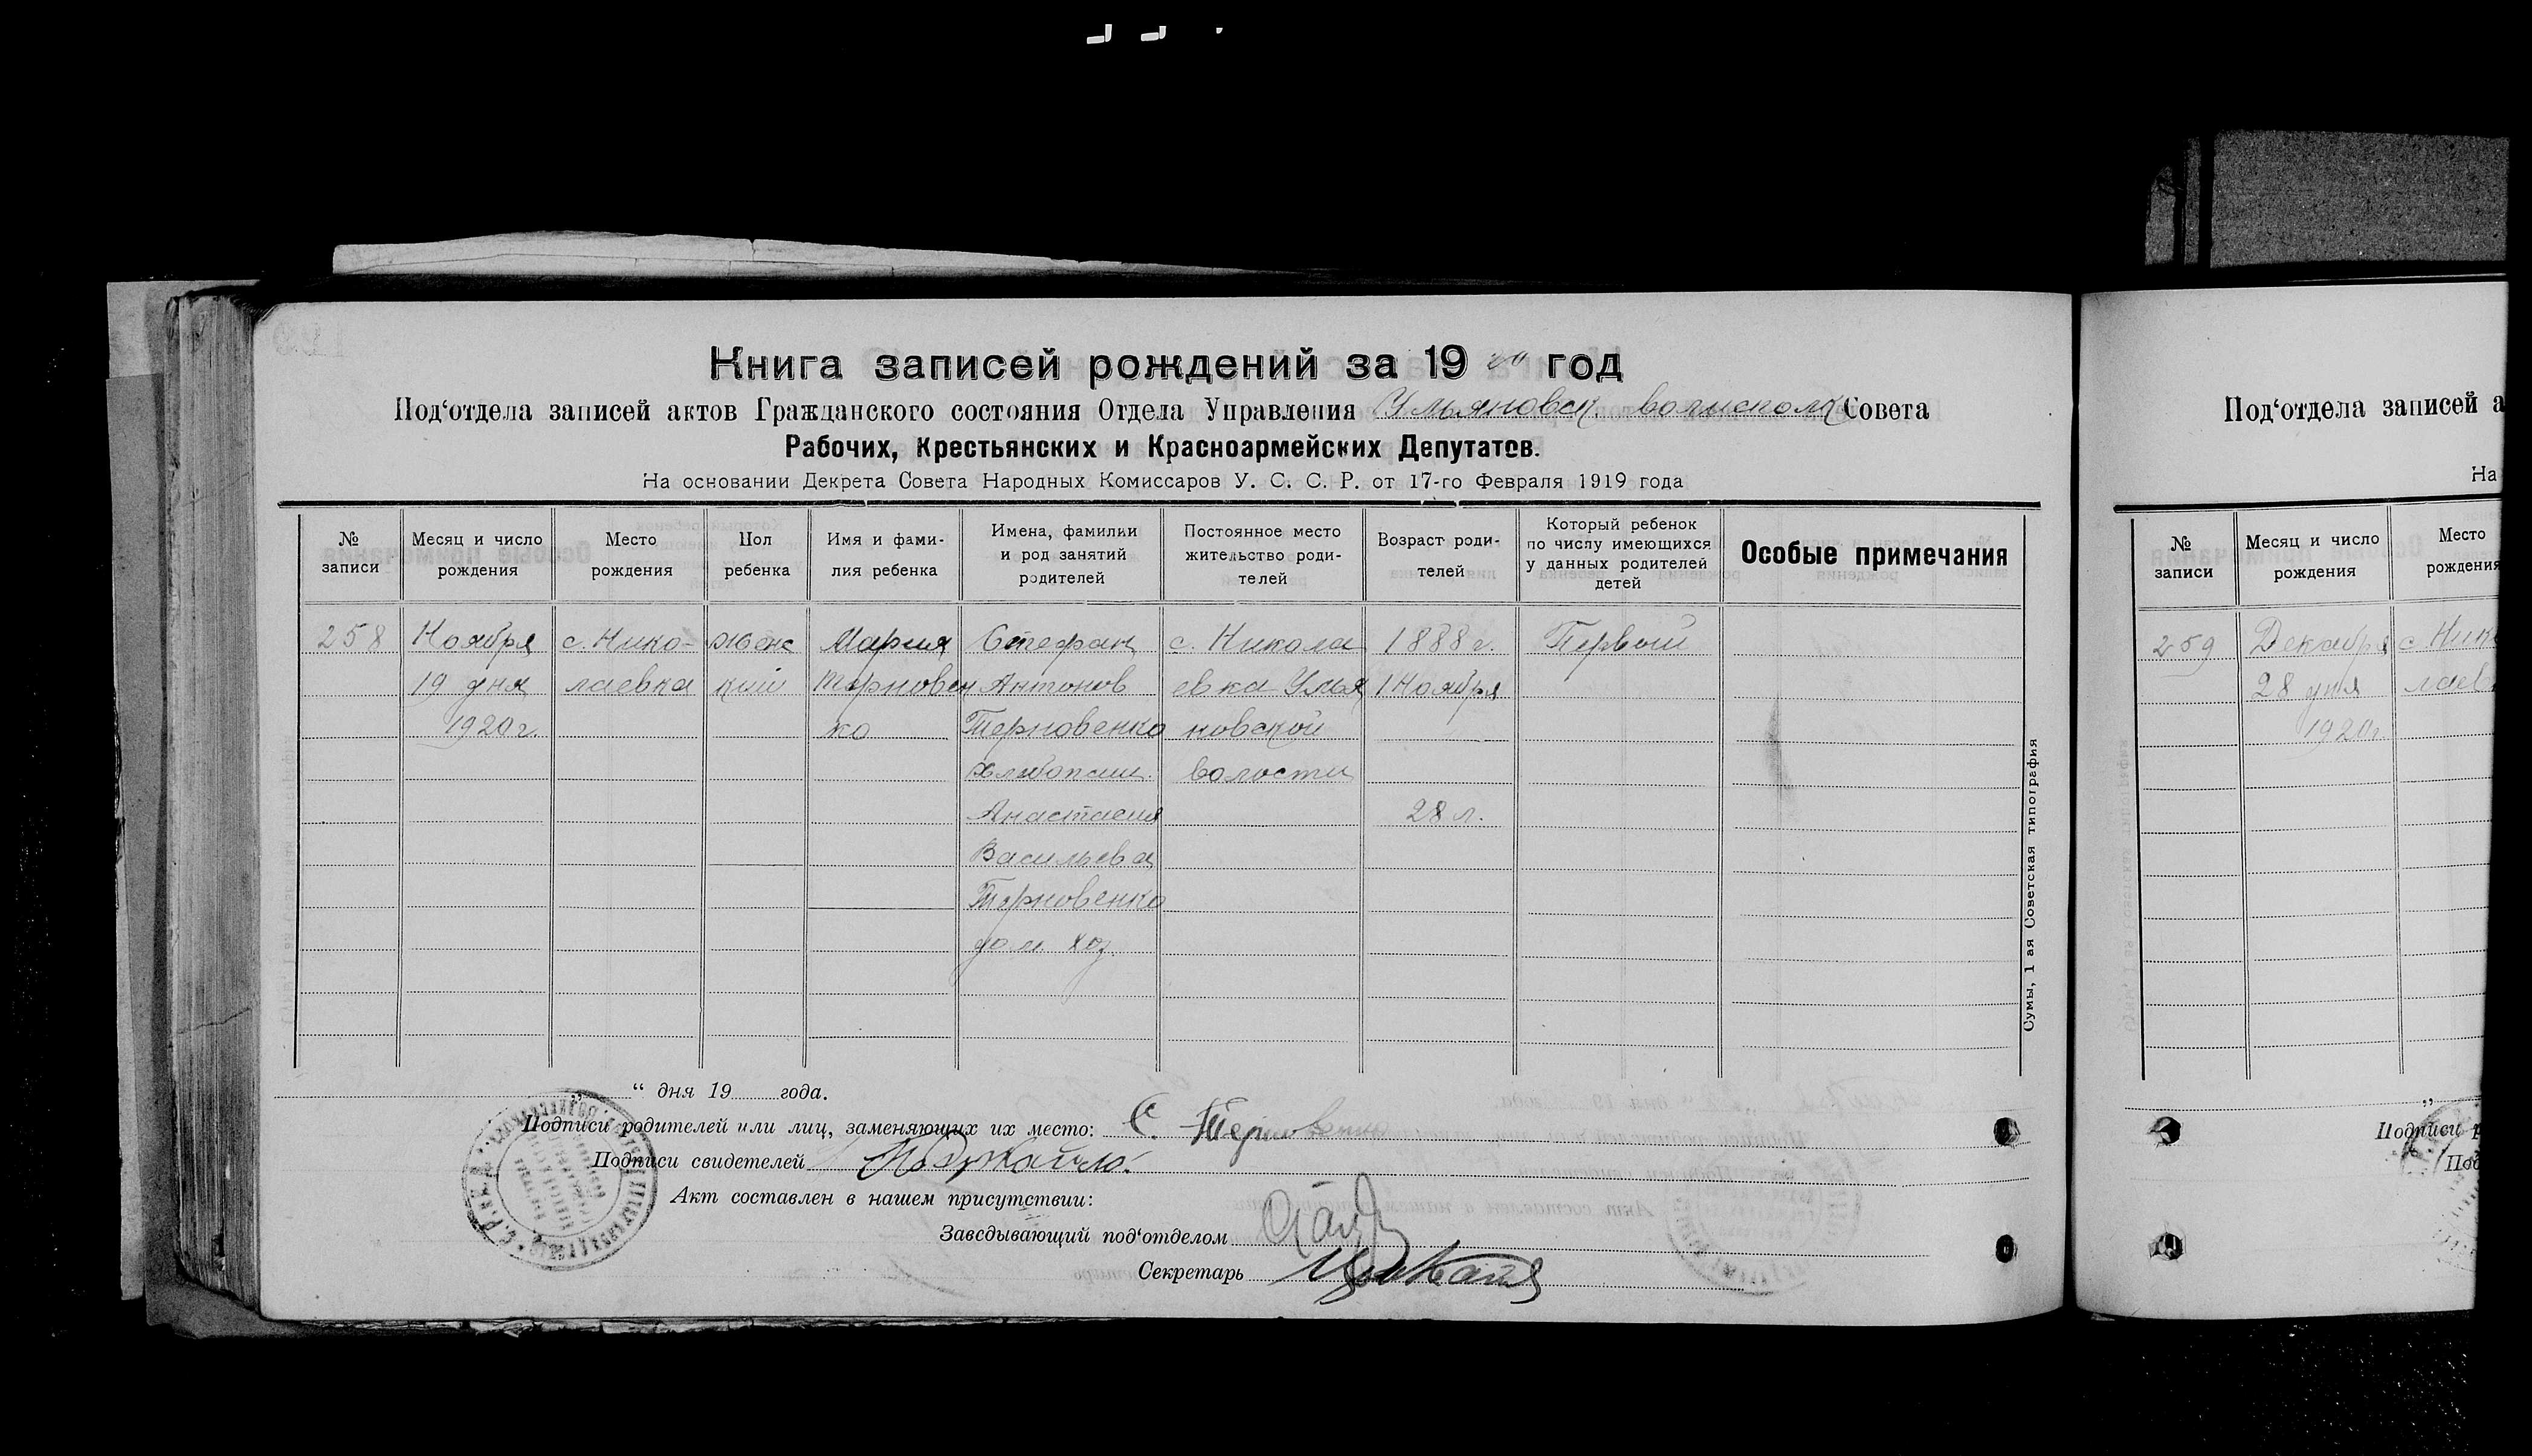 Книга записей рождений за 1920 год
Под‘отдела записей актов Гражданского состояния Отдела Управления Ульяновск. волисполк Совета
Рабочих, Крестьянских и Красноармейских Депутатов.
На основании Декрета Совета Народных Комиссаров У. С. С. Р. от 17-го Февраля 1919 года
№ записи
Месяц и число рождения
Место рождения
Пол ребенка
Имя и фами-
лия ребенка
Имена, фамилии
и род занятий
родителей
Постоянное место
жительство роди-
телей
Возраст роди-
телей
Который ребенок
по числу имеющихся
у данных родителей
детей
Особые примечания
258
Ноября
19 дня
1920 г.
с. Нико-
лаевка
женс
кий
Мария
Терновен
ко
Стефан
Антонов
Терновенко
Хлебопаш.
Анастасия
Васильева
Терновенко
дом. хоз.
с. Никола
евка Улья
новской
волости
1888 г.
1 Ноября
28 л.
Первый
Сумы, 1 ая Советская типография
„ “ дня 19 года.
Подписи родителей или лиц, заменяющих их место: С. Терновенко
Подписи свидетелей
Акт составлен в нашем присутствии:
Заведывающий под‘отделом
Секретарь
Под‘отдела записей а
На
№ записи
Месяц и число рождения
Место
рождения
259
Декабря
28 дня
1920 г.
с. Нико
лаев
„
Подписи р
Под